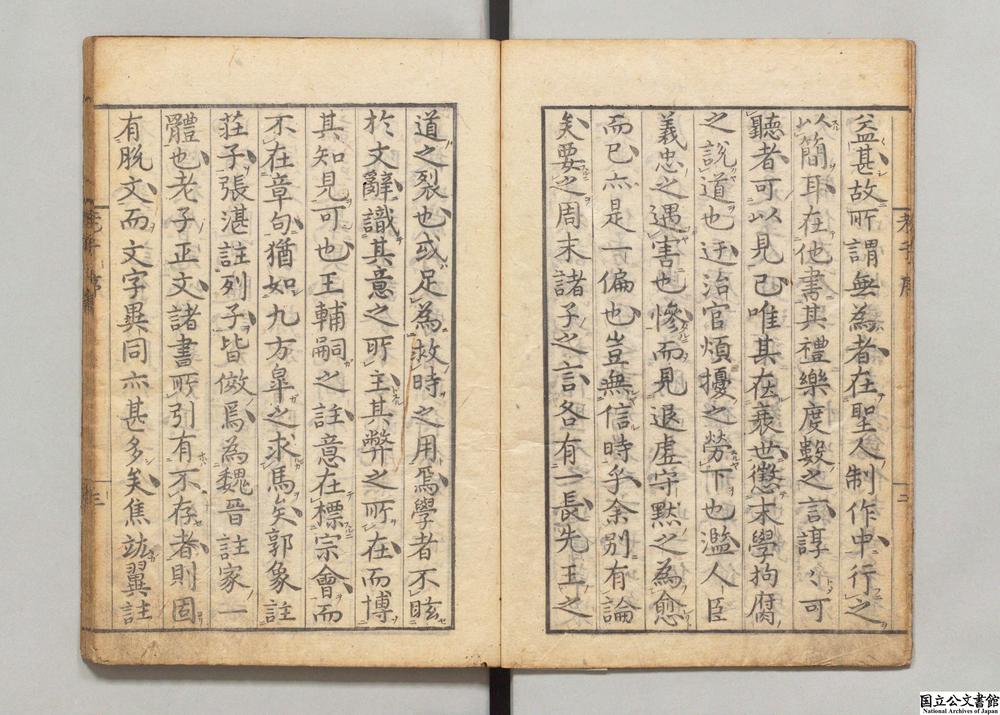 益甚故所謂無為者在聖人制作中行之
以簡耳在他書其禮樂度數之言諄々可
聽者可以見已唯其在衰世懲末學拘腐
之說道也迂治官煩擾之勞下也濫人臣
義忠之遇害也慘而見退虛守默之為愈
而已亦是一偏也豈無信時乎余別有論
矣要之周末諸子之言各有一長先王之
道之裂也或足為救時之用焉學者不眩
於文辭識其意之所主其弊之所在而博
其知見可也王輔嗣之註意在標宗會而
不在章句猶如九方皐之求馬矣郭象註
莊子張湛註列子皆倣焉為魏晉註家一
體也老子正文諸書所引有不存者則固
有脫文而文字異同亦甚多矣焦竑翼註
老子序
二
三
国立公文書館
National Archives of Japan